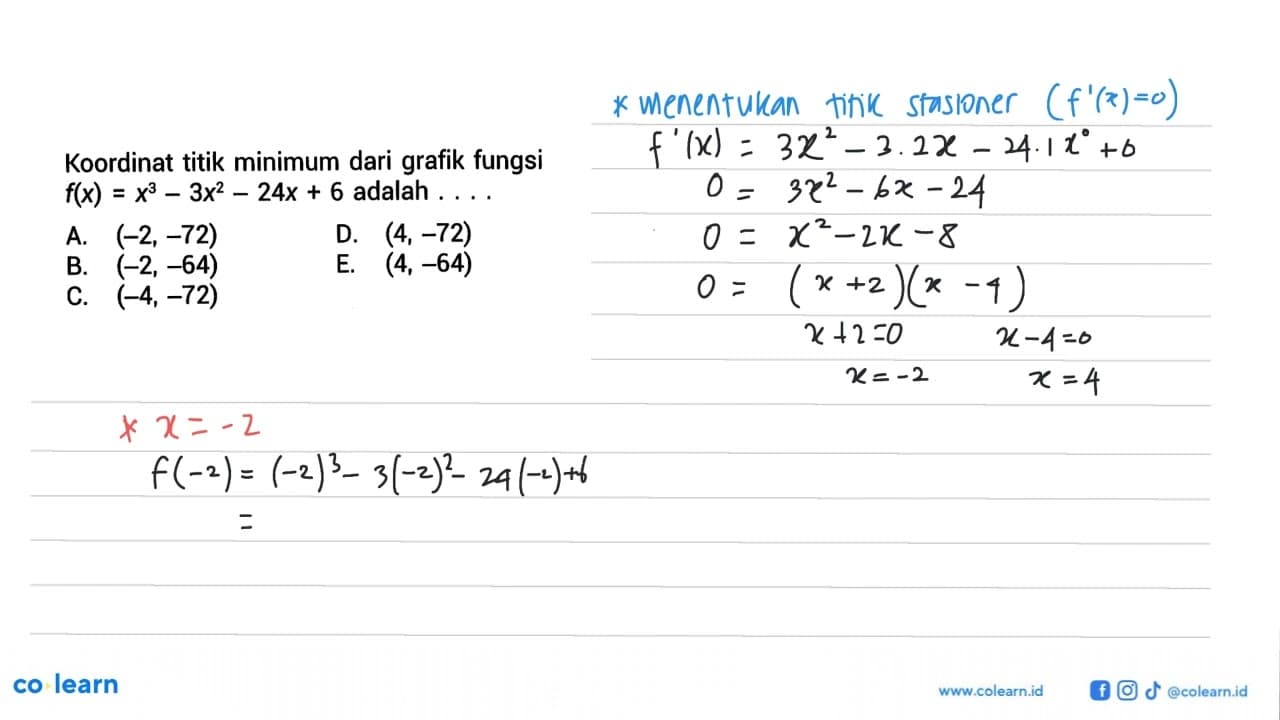 * menentukan titik stasioner (f'(x)=0)
f'(x) = 3x² - 3.2x - 24.1x⁰ + 0
0 = 3x² - 6x - 24
0 = x² - 2x - 8
0 = (x +2)(x - 4)
x+2=0 x-4=0
x=-2 x=4
Koordinat titik minimum dari grafik fungsi
f(x) = x³ – 3x² – 24x + 6 adalah . . . .
A. (–2, –72) D. (4, –72)
B. (–2, –64) E. (4, –64)
C. (–4, –72)
* x = -2
f(-2) = (-2)³- 3(-2)²- 24(-2)+6
=
co learn
www.colearn.id @colearn.id